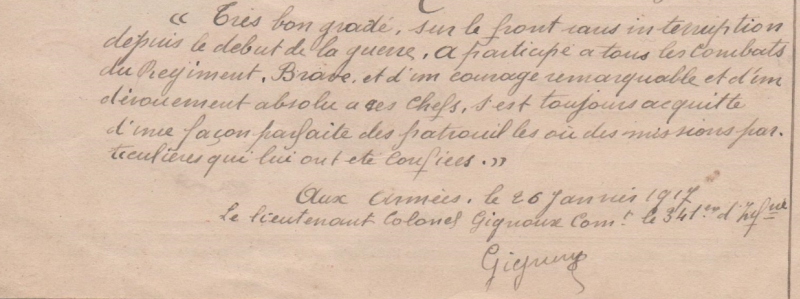 « Très bon gradé, sur le front sans interruption
depuis le debut de la guerre, a participé a tous les combats
du Regiment. Brave, et d'un courage remarquable et d'un
dévouement absolu a ses chefs, s'est toujours acquitté
d'une façon parfaite des patrouilles où des missions par-
ticulières qui lui ont eté confiees. »
Aux Armées, le 26 Janvier 1917
Le Lieutenant Colonel Gignoux Comt le 341er d'Infie
Gignoux